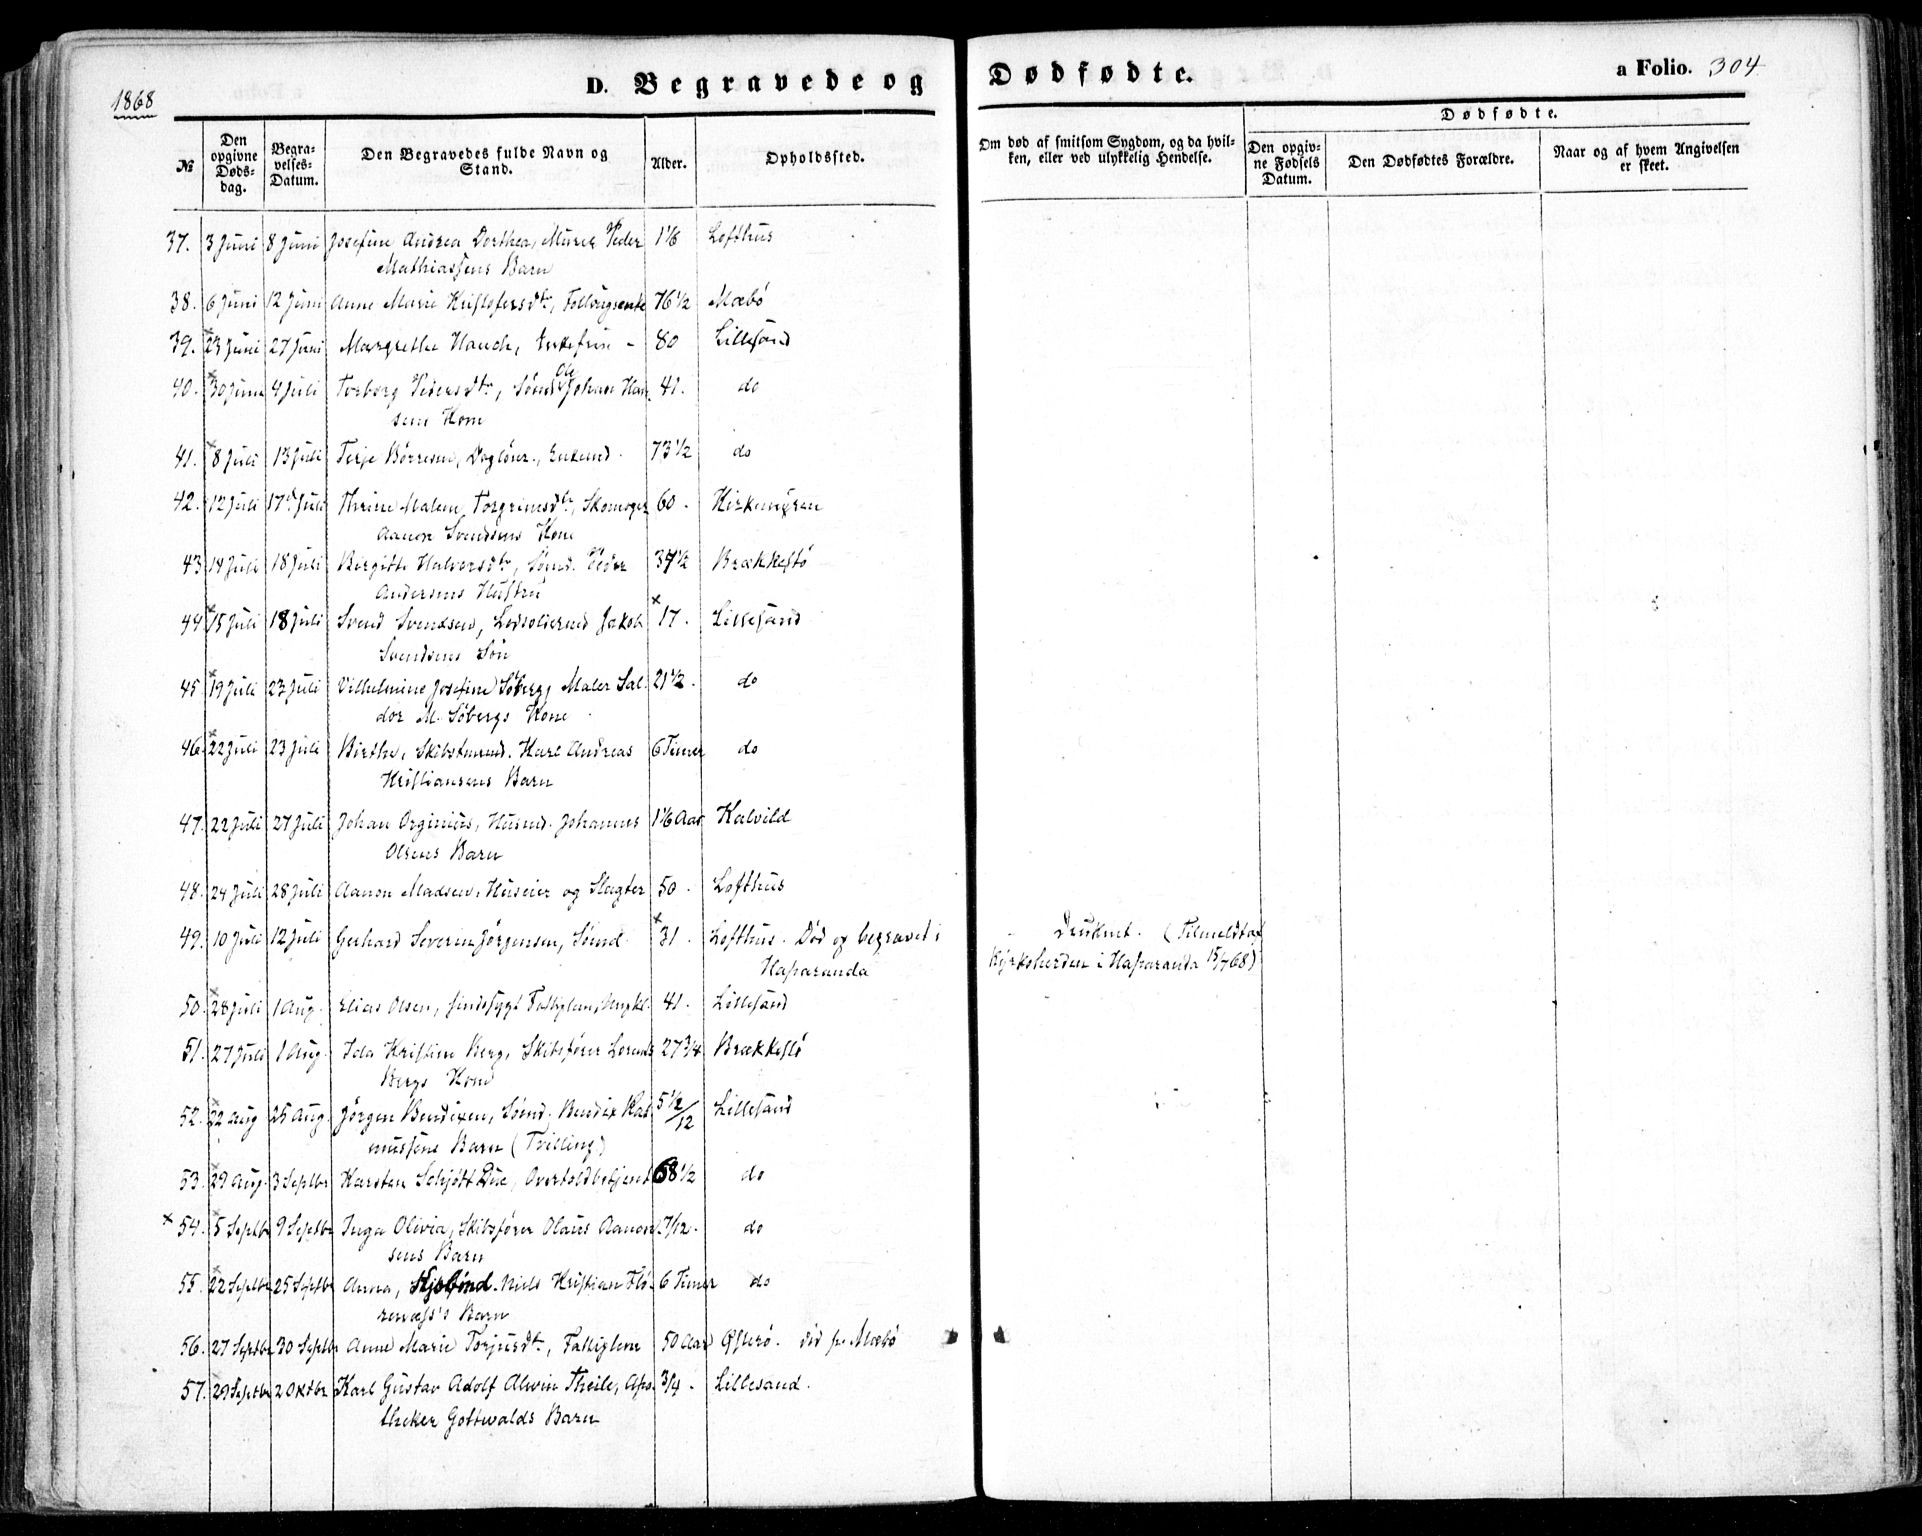 1868
D. Begravede og Dødfødte.
a Folio. 304
№
Den opgivne Døds-dag.
Begra-velses-Datum.
Den Begravedes fulde Navn og Stand.
Alder.
Opholdssted.
Om død af smitsom Sygdom, og da hvil-ken, eller ved ulykkelig Hendelse.
Dødfødte.
Den opgiv-ne Fødsels Datum.
Den Dødfødtes Forældre.
Naar og af hvem Angivelsen er skeet.
37. 3 Juni 8 Juni Josefine Andrea Dorthea, Murer Peder 1 1/6 Lofthus
Mathiassens Barn
38. 6 Juni 12 Juni Anne Marie Kristofersdtr, 76 1/2 Mæbø
39. 23 Juni 27 Juni Margrethe Hauch, Enkefrue - 80 Lillesand
40. 30 Juni 4 Juli Torborg Pedersdtr, Sømd Ole Johan Han 41. do
sens Kone
41. 8 Juli 13 Juli Terje Børresen, Dagløner, Enkemd. 73 1/2 do
42. 12 Juli 17 Juli Thrine Malene Torgrimsdtr, Skomager 60. Kirkemyren
Aanon Svendsens Kone
43 14 Juli 18 Juli Birgitte Halvorsdtr, Sømd. Peder 37 1/2 Brækkestø
Andersens Hustru
44 15 Juli 18 Juli Svend Svendsen, Jakob 17. Lillesand
Svendsens Søn
45 19 Juli 23 Juli Vilhelmine Josefine Söberg, Maler Sal 21 1/2. do
dor M. Söbergs Kone
46. 22 Juli 23 Juli Birthe, Skibstmmd. Karl Andreas 6 Timer do
Kristiansens Barn
47. 22 Juli 27 Juli Johan Orginius, Husmd. Johannes 1 1/6 Aar Kalvild
Olsens Barn
48. 24 Juli 28 Juli Aanon Madsen, Huseier og Slagter 50. Lofthus
49. 10 Juli 12 Juli Gerhard Severin Jørgensen, Sømd. 31. Lofthus. Død og begravet i Druknet. (Tilmeldt af
Haparanda Kyrkoherden i Haparanda 15/7 68)
50. 28 Juli 1 Aug. Elias Olsen, sindssygt Fattiglem, Ungkl. 41. Lillesand
51. 27 Juli 1 Aug. Ida Kristine Berg, Skibsfører Lorents 27 3/4 Brækkestø
Bergs Kone
52. 22 Aug 25 Aug. Jørgen Bendixen, Sømd. Bendix Ras 5 1/2/12 Lillesand
mussens Barn (Tvilling)
53. 29 Aug. 3 Septbr Karsten Schjøtt Due, Overtoldbetjent 68 1/2 do
54. 5 Septbr 9 Septbr Inga Olivia, Skibsfører Olaus Aanon 7/12. do
sens Barn
55. 22 Septbr 25 Septbr Anna, Niels Kristian Flø 6 Timer do
renæss's Barn
56. 27 Septbr 30 Septbr Anne Marie Torjusdtr, Fattiglem 50 Aar Østerø. død på Mæbø
57. 29 Septbr 2 Oktbr Karl Gustav Adolf Alwin Theile, Apo 3/4. Lillesand.
theker Gottwalds Barn